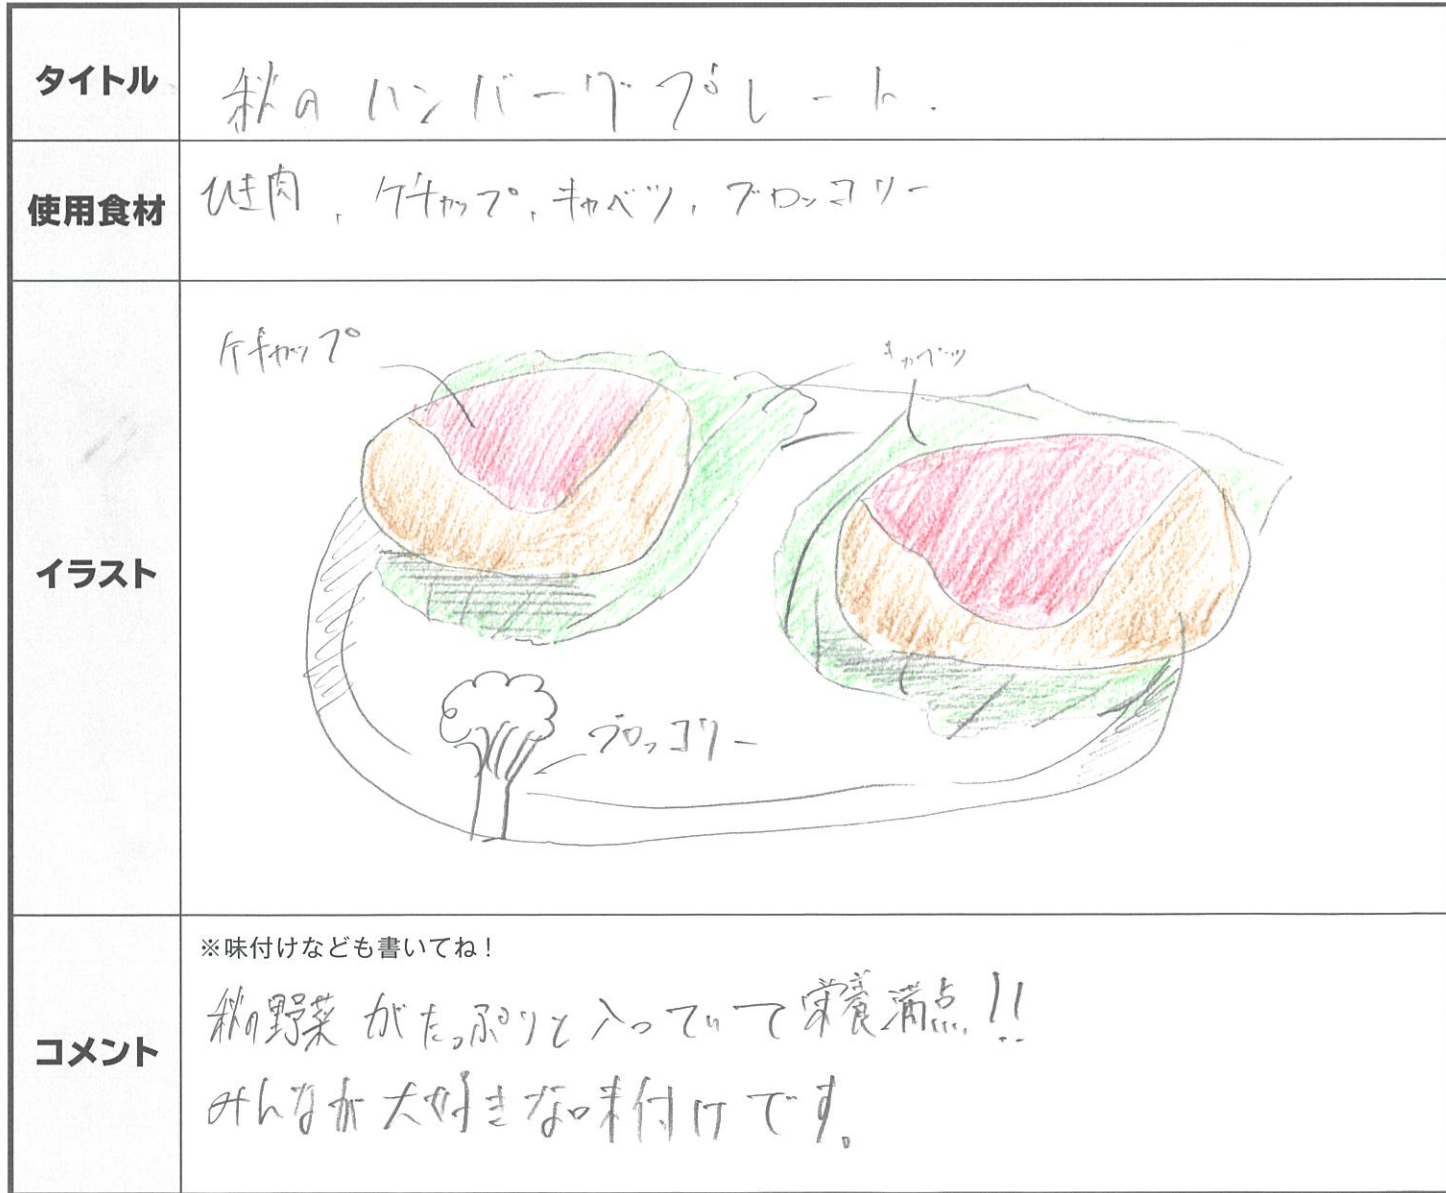 タイトル
秋のハンバーグプレート.
使用食材
ひき肉、ケチャップ、キャベツ、ブロッコリー
イラスト
ケチャップ
キャベツ
ブロッコリー
コメント
※味付けなども書いてね!
秋の野菜がたっぷりと入っていて栄養満点!!
みんなが大好きな味付けです。